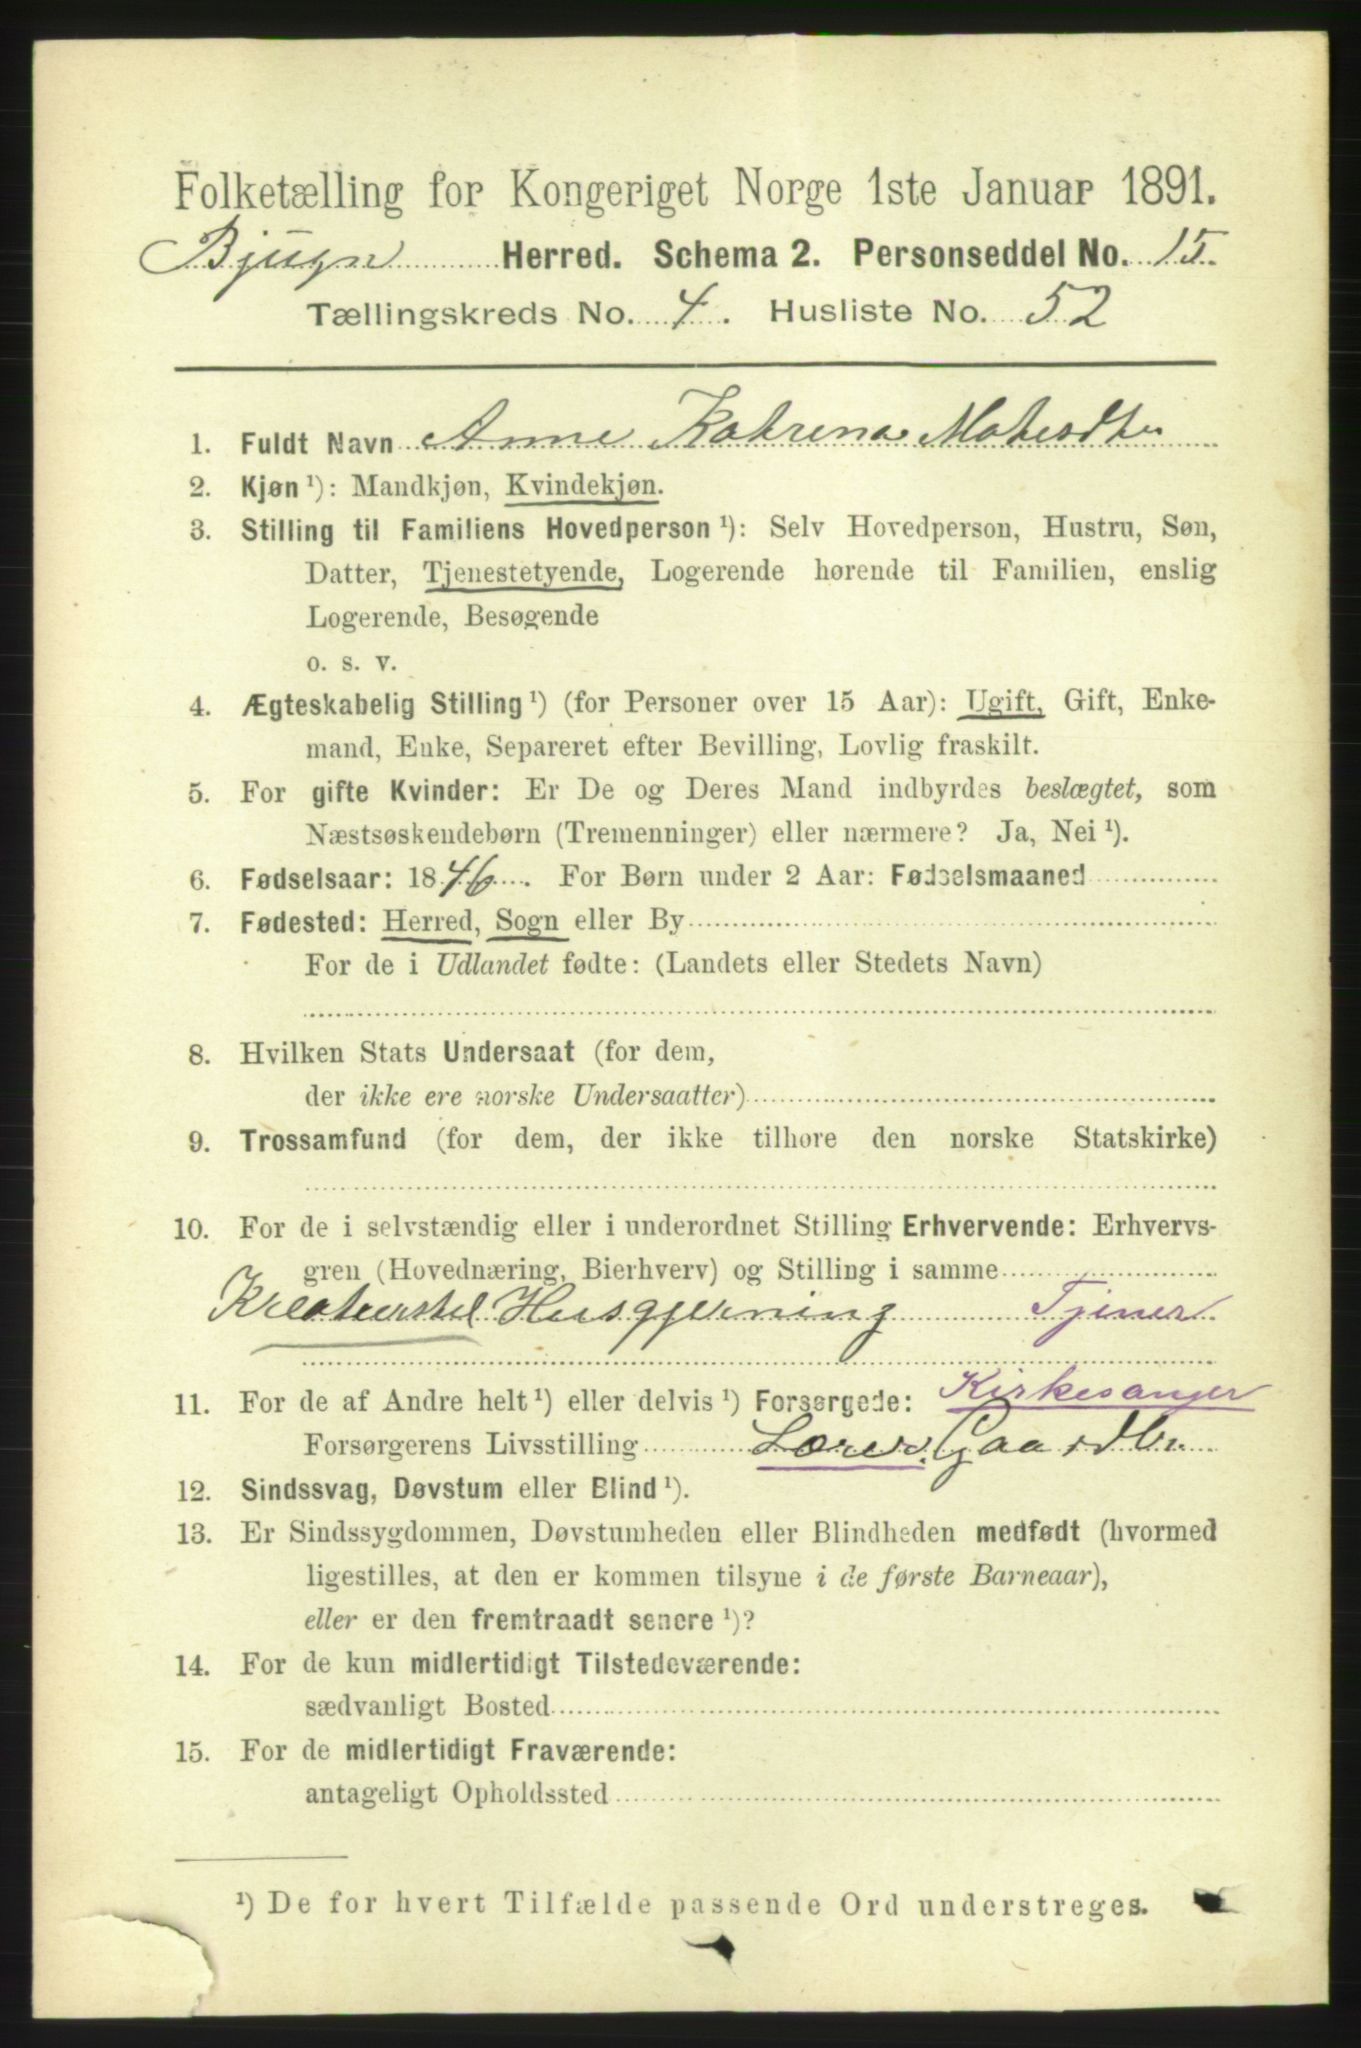 Folketælling for Kongeriget Norge 1ste Januar 1891.
Bjugn Herred. Schema 2. Personseddel No. 15
Tællingskreds No. 4. Husliste No. 52
1. Fuldt Navn Anne Katrena
2. Kjøn ¹): Mandkjøn, Kvindekjøn.
3. Stilling til Familiens Hovedperson ¹): Selv Hovedperson, Hustru, Søn,
Datter, Tjenestetyende, Logerende hørende til Familien, enslig
Logerende, Besøgende
o. s. v.
4. Ægteskabelig Stilling ¹) (for Personer over 15 Aar): Ugift, Gift, Enke-
mand, Enke, Separeret efter Bevilling, Lovlig fraskilt.
5. For gifte Kvinder: Er De og Deres Mand indbyrdes beslægtet, som
Næstsøskendebørn (Tremenninger) eller nærmere? Ja, Nei ¹).
6. Fødselsaar: 1846. For Børn under 2 Aar: Fødselsmaaned
7. Fødested: Herred, Sogn eller By
For de i Udlandet fødte: (Landets eller Stedets Navn)
8. Hvilken Stats Undersaat (for dem,
der ikke ere norske Undersaatter)
9. Trossamfund (for dem, der ikke tilhøre den norske Statskirke)
10. For de i selvstændig eller i underordnet Stilling Erhvervende: Erhvervs-
gren (Hovednæring, Bierhverv) og Stilling i samme
Kreaturstel Husgjerning Tjener
11. For de af Andre helt ¹) eller delvis ¹) Forsørgede: Kirkesanger
Forsørgerens Livsstilling Lærer, Gaardbr.
12. Sindssvag, Døvstum eller Blind ¹).
13. Er Sindssygdommen, Døvstumheden eller Blindheden medfødt (hvormed
ligestilles, at den er kommen tilsyne i de første Barneaar),
eller er den fremtraadt senere ¹)?
14. For de kun midlertidigt Tilstedeværende:
sædvanligt Bosted
15. For de midlertidigt Fraværende:
antageligt Opholdssted
¹) De for hvert Tilfælde passende Ord understreges.